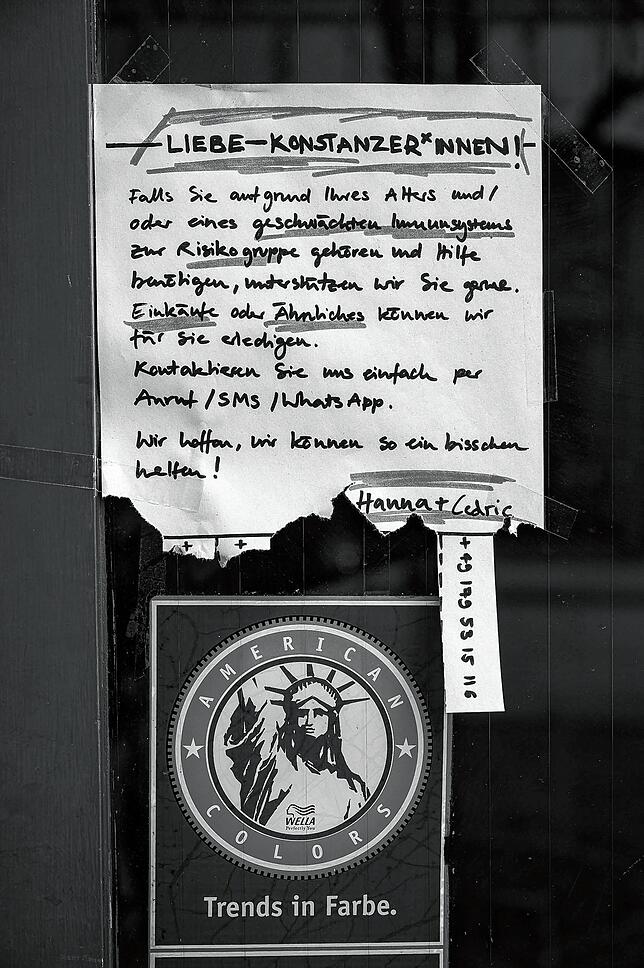 LIEBE KONSTANZER*INNEN!
Falls Sie aufgrund Ihres Alters und/
oder eines geschwächten Immunsystems
zur Risikogruppe gehören und Hilfe
benötigen, unterstützen wir Sie gerne.
Einkäufe oder Ähnliches können wir
für Sie erledigen.
Kontaktieren Sie uns einfach per
Anruf/SMS/WhatsApp.
Wir hoffen, wir können so ein bisschen
helfen!
Hanna + Cedric
+
+
+49 170 53 15 116
AMERICAN
WELLA
Perfectly You
COLORS
Trends in Farbe.